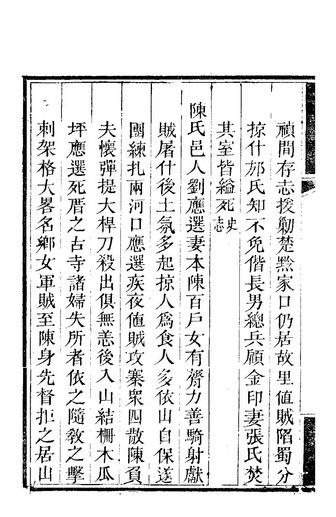 禎間存志援勦楚黔家口仍居故里値賊陷蜀分
掠什邡氏知不免偕長男總兵顧金印妻張氏焚
其室皆縊死史志
陳氏邑人劉應選妻本陳百戶女有膂力善騎射獻
賊屠什後土氛多起掠人爲食人多依山自保送
團練扎兩河口應選疾夜値賊攻寨衆四散陳負
夫懷彈提大桿刀殺出俱無恙後入山結柵木瓜
坪應選死厝之古寺諸婦失所者依之隨敎之擊
刺架格大畧名鄉女軍賊至陳身先督拒之居山